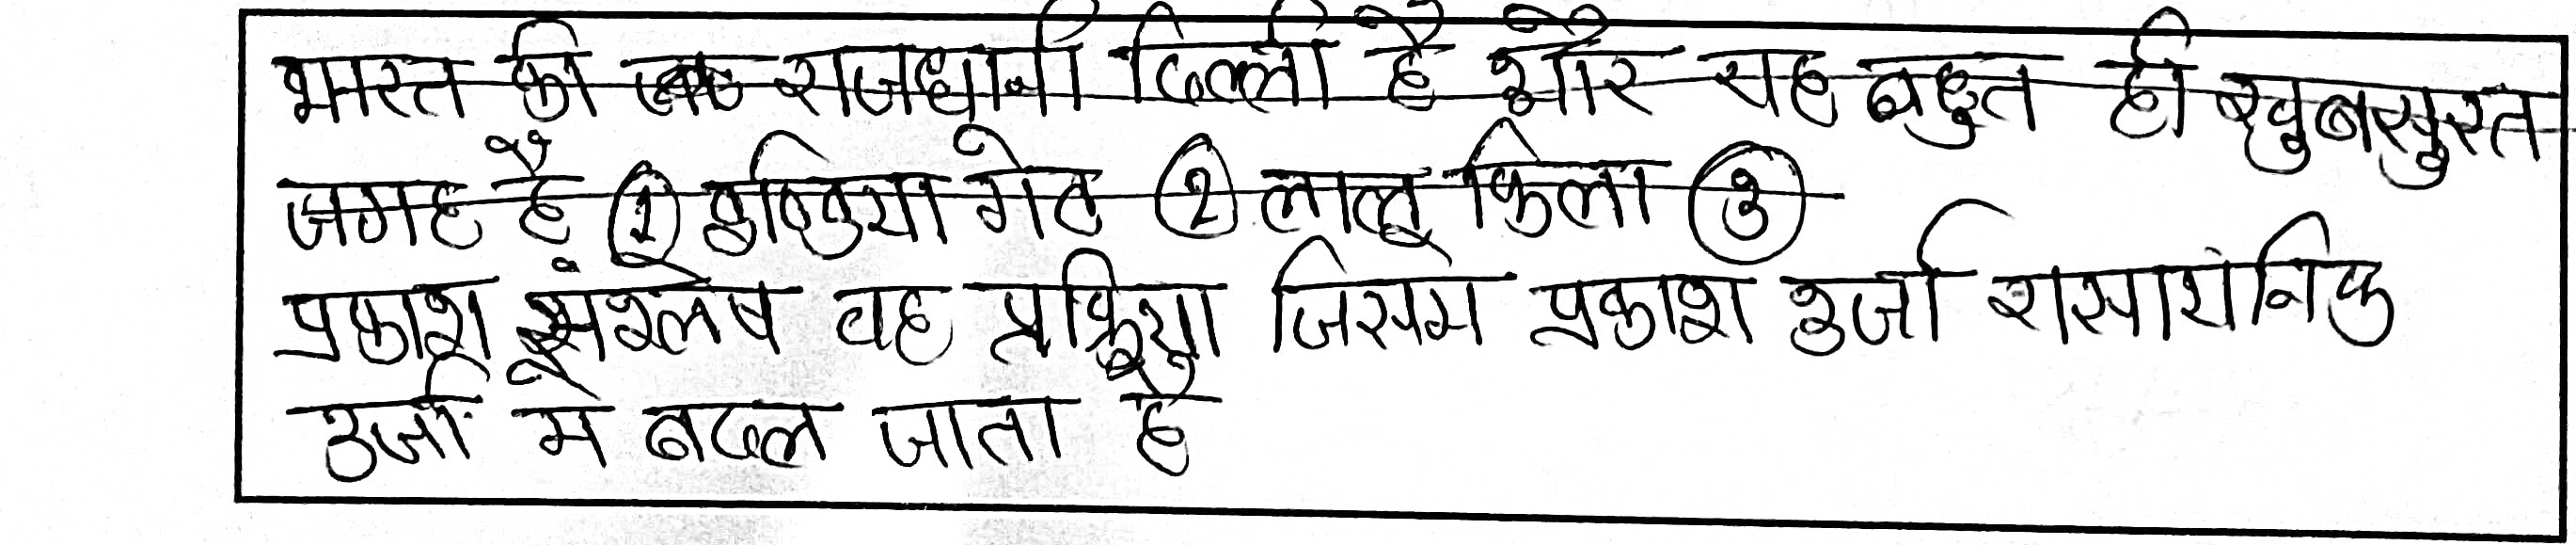 भारत की राजधानी दिल्ली है और यह बहुत ही खुबसुरत
जगह है ① इण्डिया गेट ② लाल किला ③
प्रकाश संश्लेष वह प्रक्रिया जिसमे प्रकाश उर्जा रासायनिक
उर्जा मे बदल जाता है